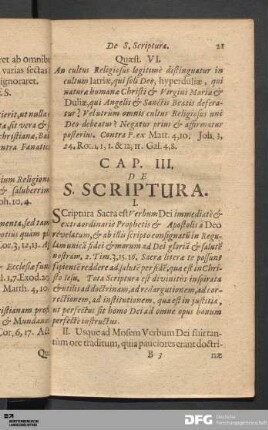 De S. Scriptura. 21
Quæst. VI.
An cultus Religiosus legitimè destinguatur in
cultum latriæ, qui soli Deo, hyperduliæ, qui
naturæ humanæ Christi & Virgini Mariæ &
Duliæ, qui Angelis & Sanctis Beatis defera-
tur? Velutrùm omnis cultus Religiosus uni
Deo debeatur? Negatur prius & affirmatur
posterius. Contra P. ex Matt. 4,10. Joh. 2,
24. Rom. 1, 1. & 12, 11. Gal. 4,8.
CAP. III.
DE
S. SCRIPTURA.
I.
SCriptura Sacra est Verbum Dei immediatè &
extraordinariè Prophetis & Apostolis à Deo
revelatum, & ab illis scripto consignatū in Regu-
lam unicā fidei & morum ad Dei gloriā & salutē
nostram, 2. Tim. 3, 15. 16. Sacra litera te possunt
sapientē reddere ad salutē per fidē, quæ est in Chri-
sto Jesu. Tota Scriptura est divinitùs inspirata
& utilis ad doctrinam, ad redargutionem, ad cor-
rectionem, ad institutionem, quæ est in justitia,
ut perfectus sit homo Dei ad omne opus bonum
perfectè instructus.
II. Usque ad Mosem Verbum Dei fuit tan-
tùm ore traditum, quia pauciores erant doctri-
B 3 næ
ret ab omnib
varias sectas
ignocaret.
E S.
oh. 10. 4.
Cor. 3,
Matth. 4, 10
& Mundan
Cor. 6, 17.
DFG Deutsche
Forschungsgemeinschaft